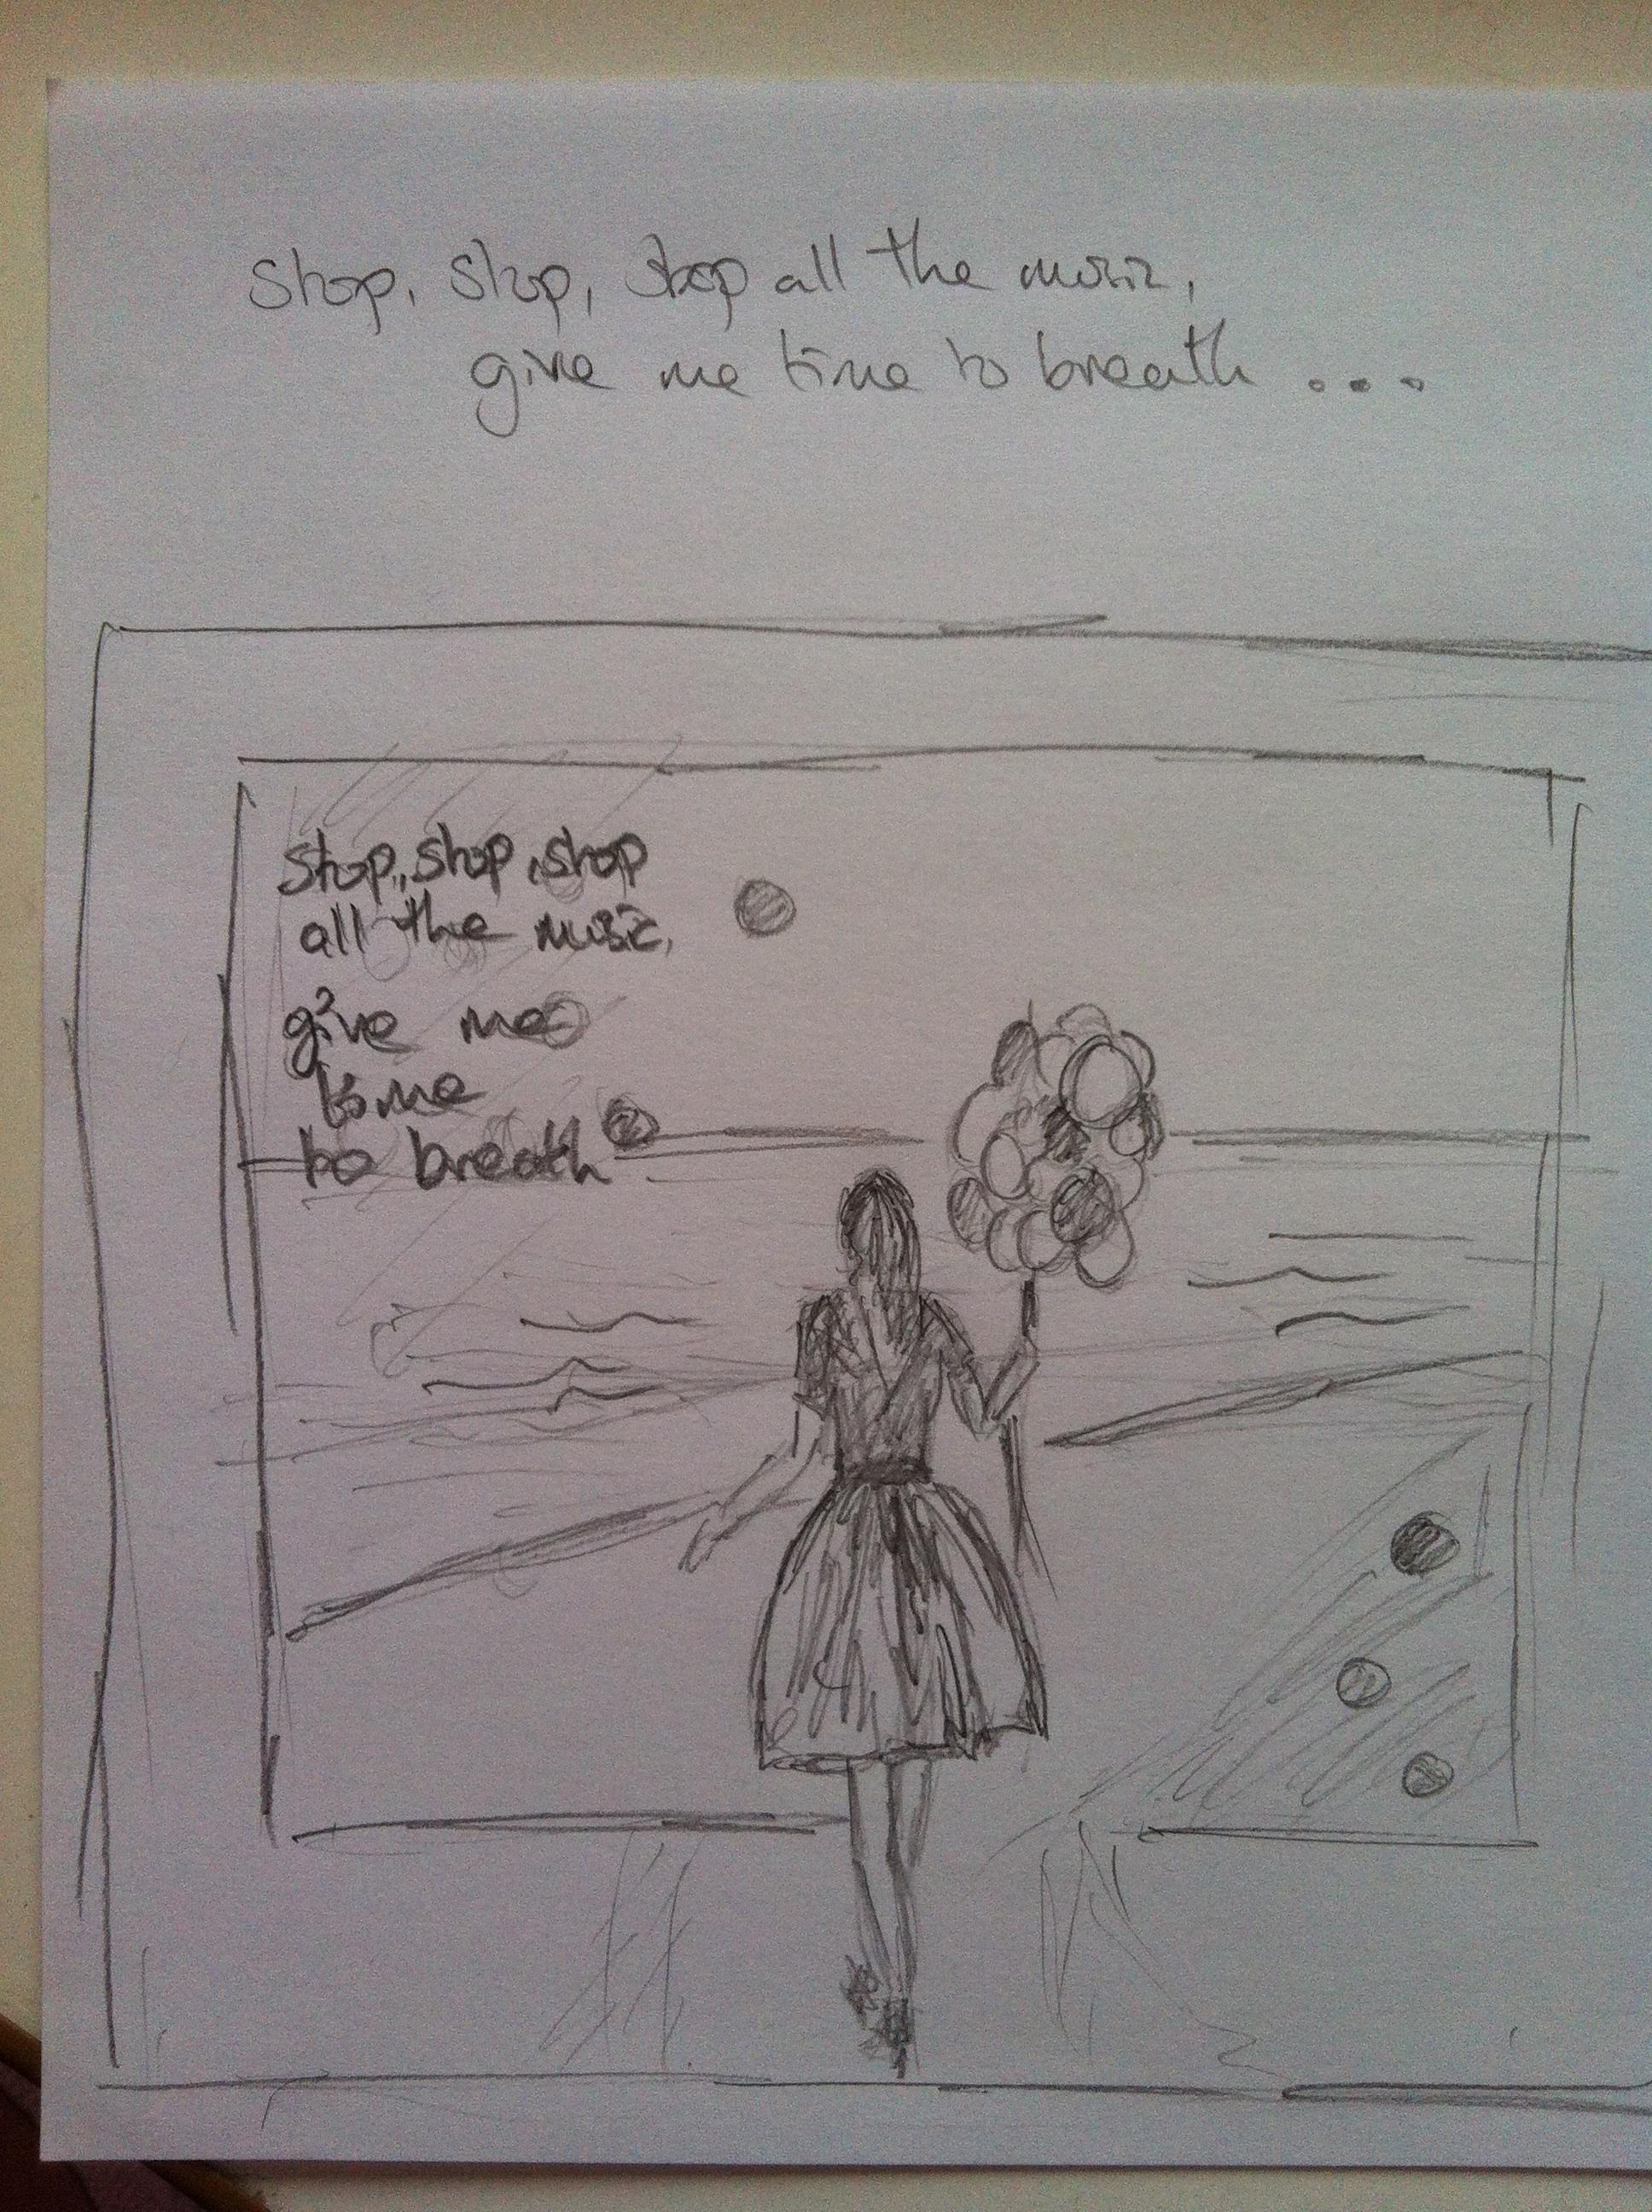 Stop, Stop, Stop all the music,
give me time to breath ...
Stop, Stop, Stop
all the music,
give me
time
to breath